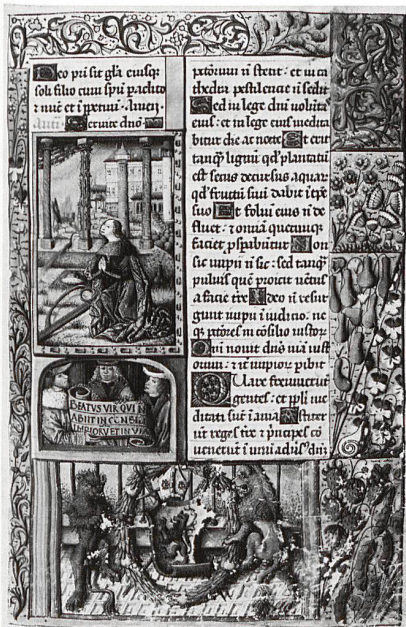 Deo pri sit gla eiusq̄
soli filio cum spu paclito
et nūc et ī ppetuū. Auen
Anti. Seruite dno
BEATVS VIR QVI N
ABIIT IN CONSIL
IMPIORV ET IN VIA
pctorum n̄ stetit: et in ca
thedra pestilencie n̄ sedit
Sed in lege dni uolūtas
eius: et in lege eius medita
bitur die ac nocte Et erit
tanq̄ lignū qd' plantatū
est secus decursus aquar
qd' fructū suū dabit ī tpe
suo Et foliū eius n̄ de
fluet: et omīa quecunq̄
faciet pspabūtur Non
sic impii n̄ sic: sed tanq̄
puluis quē proicit uētus
a facie tre Ideo n̄ resur
gunt impii ī iudicio: ne
q̄ pctores ī cōsilio iustor
Qm̄ nouit dn̄s uiā iust
orum: et iter impior pibit
Quare fremuerūt
gentes: et ppli me
ditati sūt īania Astiter
ūt reges tre et pncipes cō
uenerūt ī unū adus' dn̄m